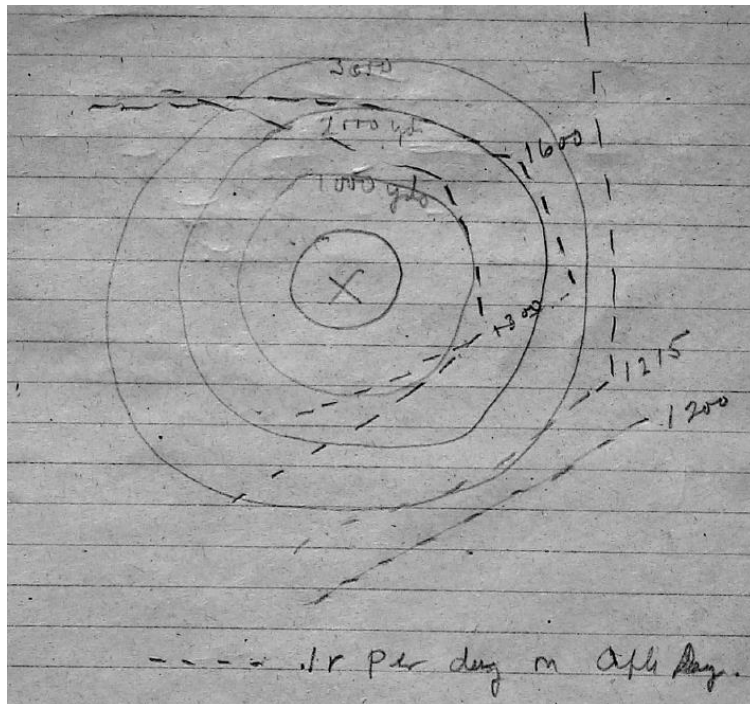 3000
2000 yds
1600
1000 yds
1300
1215
1200
.1r per day on Able Day.